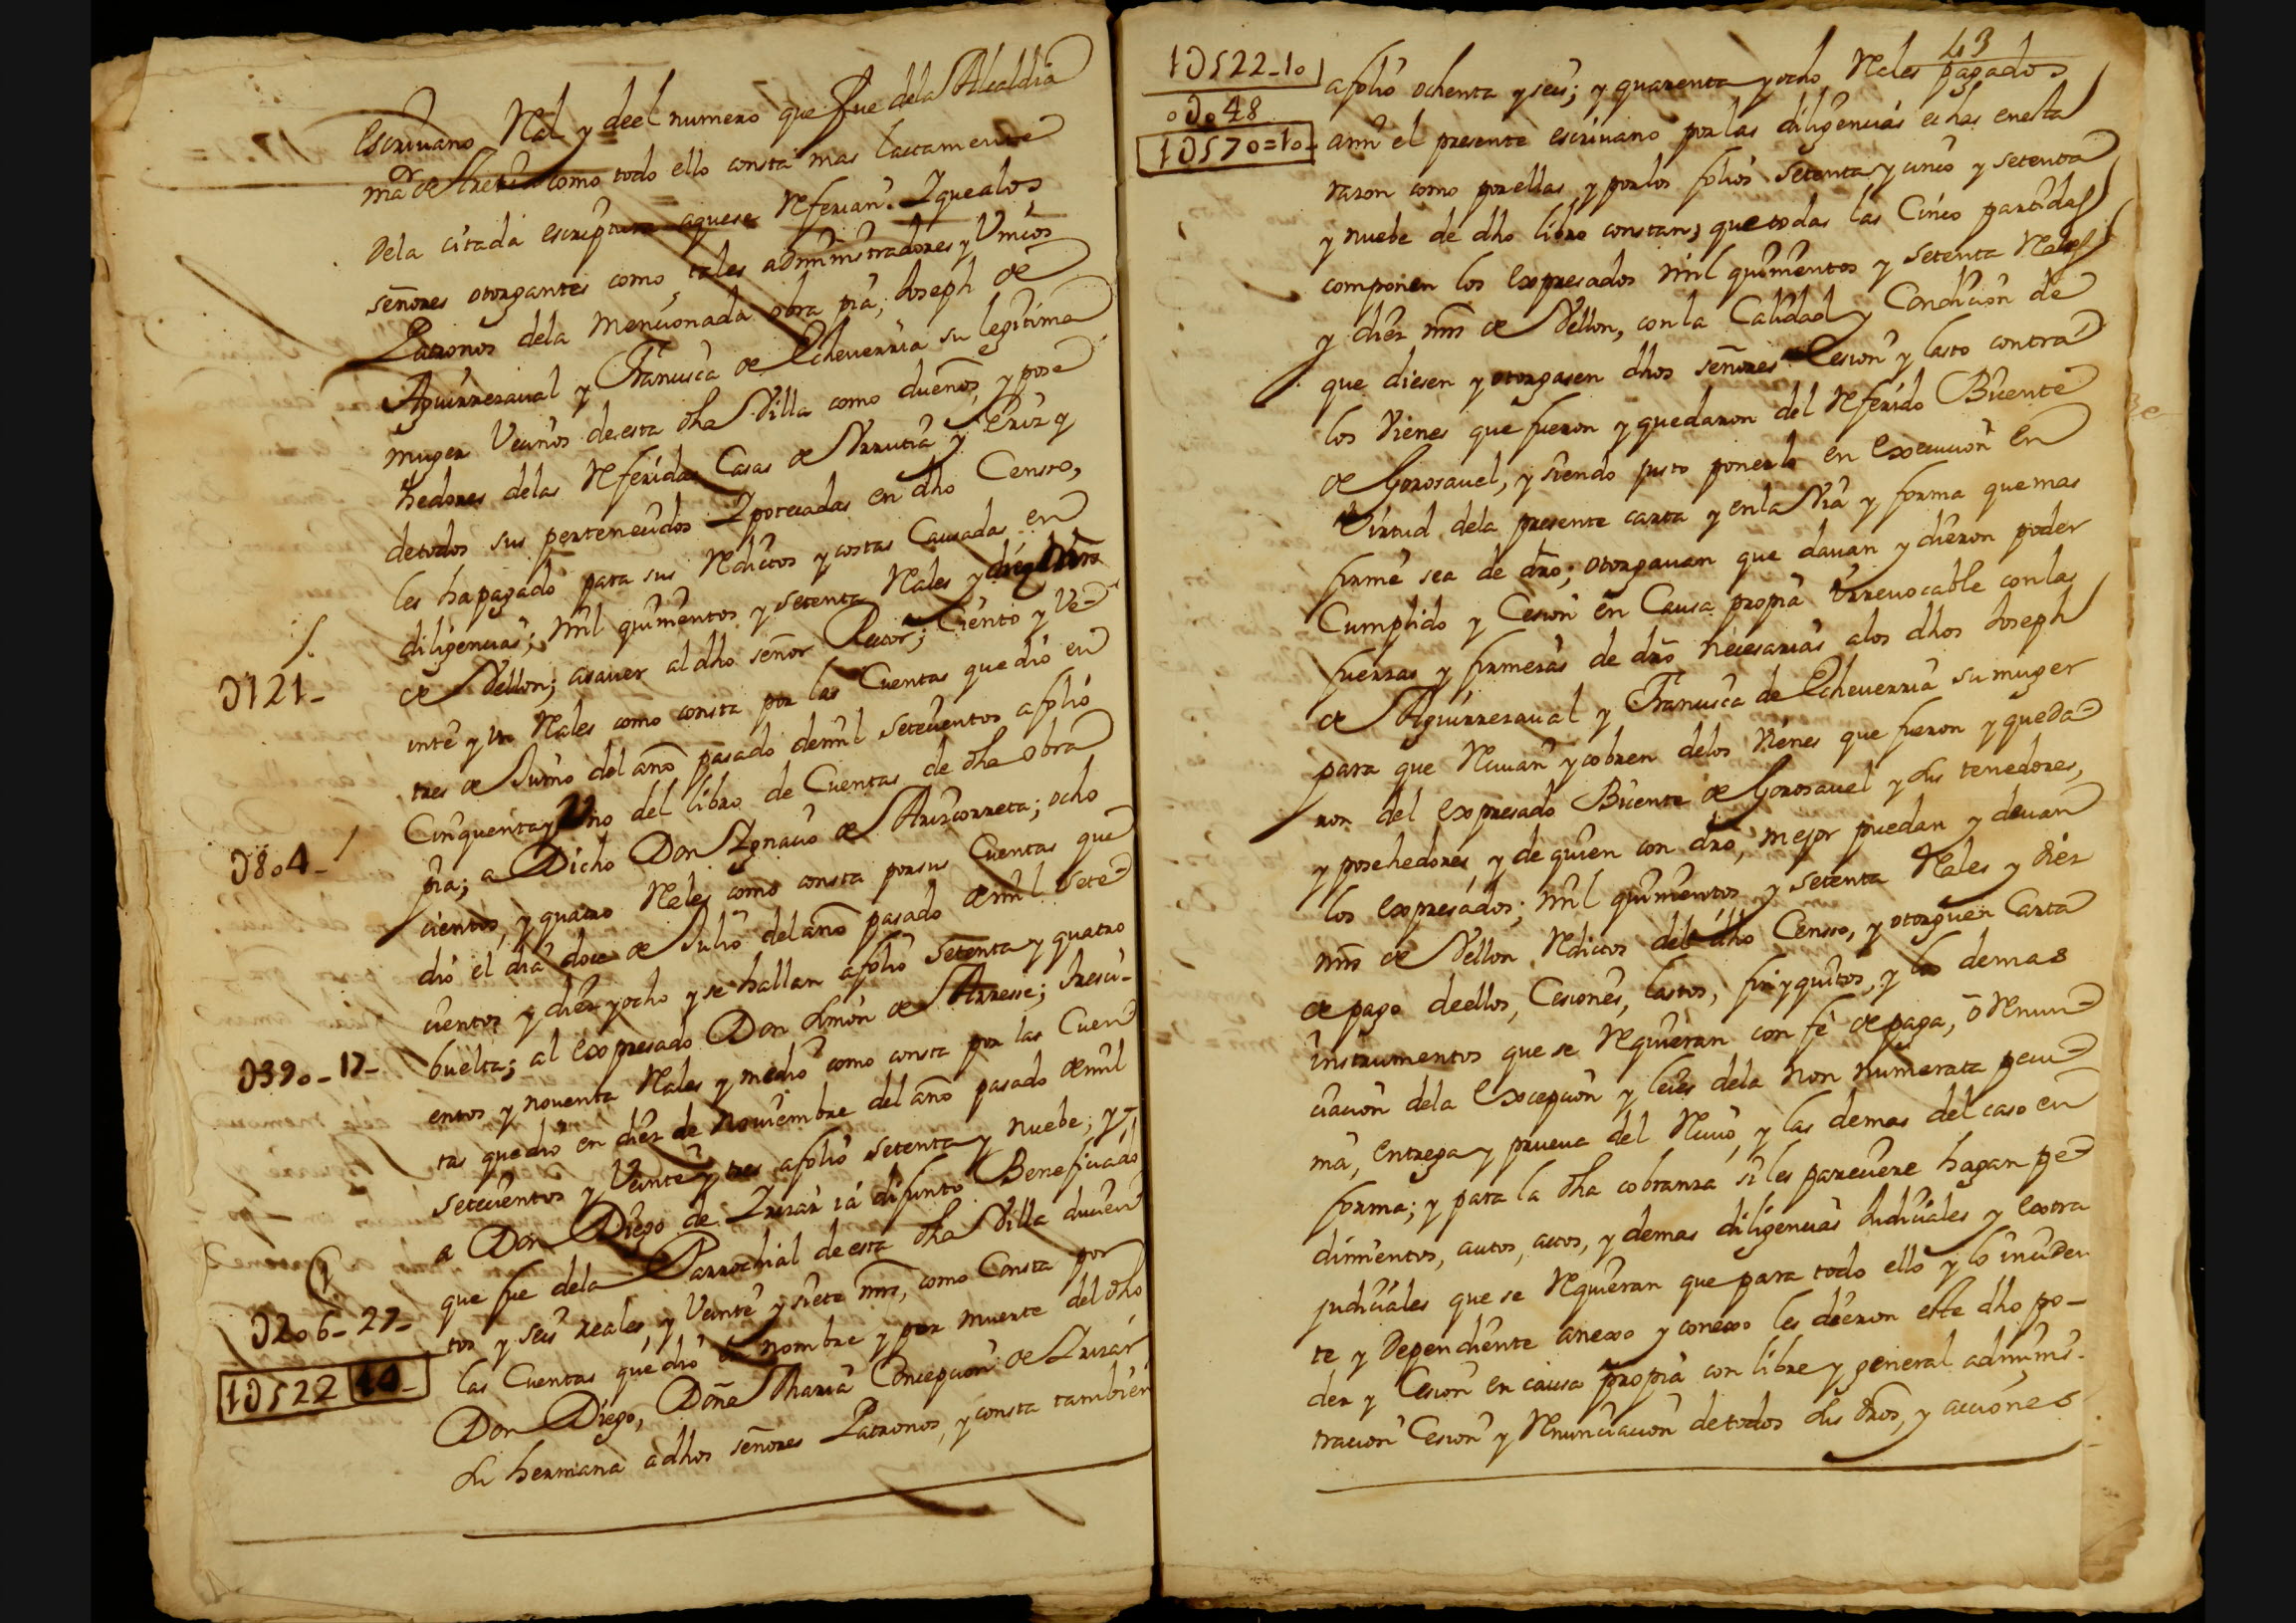 escrivano Rl y deel numero que fue dela Alcaldia
mor de Areria como todo ello consta mas lactamente
dela citada escriptura aquese referian. Yquealos
señores otorgantes como tales administradores y Unicos
Patronos dela mencionada obra pia; Joseph de
Aguirrezaval y Francisca de Echeverria su legitima
muger Vecinos de esta dha Villa como dueños, y pose
hedores delas referidas Casas de Urrutia y
detodos sus pertenecidos Ypotecadas en dho Censso,
les hapagado para sus Reditos y costas Causadas en
diligencias; mil quinientos y setenta Reales y diez mrs
de Vellon; asaver al dho señor Rector; Ciento y Ve-
0121-
inte y un Reales como consta por las Cuentas que dió en
tres de Junio del año pasado demil setecientos afolio
Cinquenta y Uno del libro de Cuentas de dha obra
0804-
pia; a Dicho Don Ygnacio de Arizcorreta; ocho
cientos, y quatro Reales como consta porsus Cuentas que
dió el dia doce de Julio del año pasado demil sete-
cientos y diez yocho y se hallan afolio setenta y quatro
buelta; al expresado Don Simon de Arresse; tresci-
0390-17-
entos y noventa Reales y medio como consta por las Cuen-
tas quedio en diez de Noviembre del año pasado demil
setecientos y Veinte y tres afolio setenta y nuebe; y
a Don Diego de Yrizar iá difunto Beneficiado
que fue dela Parrochial de esta dha Villa ducien
0206-27-
tos y seis reales, y Veinte y siete mrs, como Consta por
10522 10-
las Cuentas que dió en nombre y por muerte del dho
Don Diego, Doña Maria Concepcion de Yrizar
su hermana adhos señores Patronos, y consta tambien
43
10522-10
afolio ochenta y seis; y quarenta yocho Reales pagados
00048
10570=10-
ami el presente escrivano por las diligencias echas enesta
razon como porellas y porlos folios setenta y cinco y setenta
y nuebe de dho libro constan; que todas las Cinco partidas
componen los expresados mil quinientos y setenta Reales
y diez mrs de Vellon, con la Calidad y Condicion de
que diesen y otorgasen dhos señores Cesion y lasto contra
los Vienes que fueron y quedaron del referido Bicente
de Gorosavel, y siendo justo ponerlo en execucion en
Virtud dela presente carta y en la Via y forma que mas
firme sea de dro; otorgavan que davan y dieron poder
Cumplido y Cesion en Causa propia Yrrevocable conlas
fuerzas y firmezas de dro necesarias alos dhos Joseph
de Aguirrezaval y Francisca de Echeverria su muger
para que Rciuan y cobren delos Vienes que fueron y queda-
ron del expresado Bicente de Gorosavel y sus tenedores,
y posehedores, y de quien con dro, mejor puedan y devan
los expresados; mil quinientos y setenta Reales y diez
mrs de Vellon Reditos del dho Censso, y otorguen Carta
de pago deellos, Cesiones, lastos, finyquitos, y los demas
instrumentos que se Requieran con fe de paga, ó Renun-
ciacion dela Excepcion y leies dela non numerata pecu-
nia, entrega y prueva del Rcivo, y las demas del caso en
forma; y para la dha cobranza si les pareciere hagan pe-
dimientos, autos, actos, y demas diligencias Judiciales y extra
judiciales que se Requieran que para todo ello y lo inciden
te y Dependiente anexo y conexo les dieron este dho po-
der y Cesion en causa propia con libre y general adminis-
tracion Cesion y Renunciacion de todos sus dros, y acciones